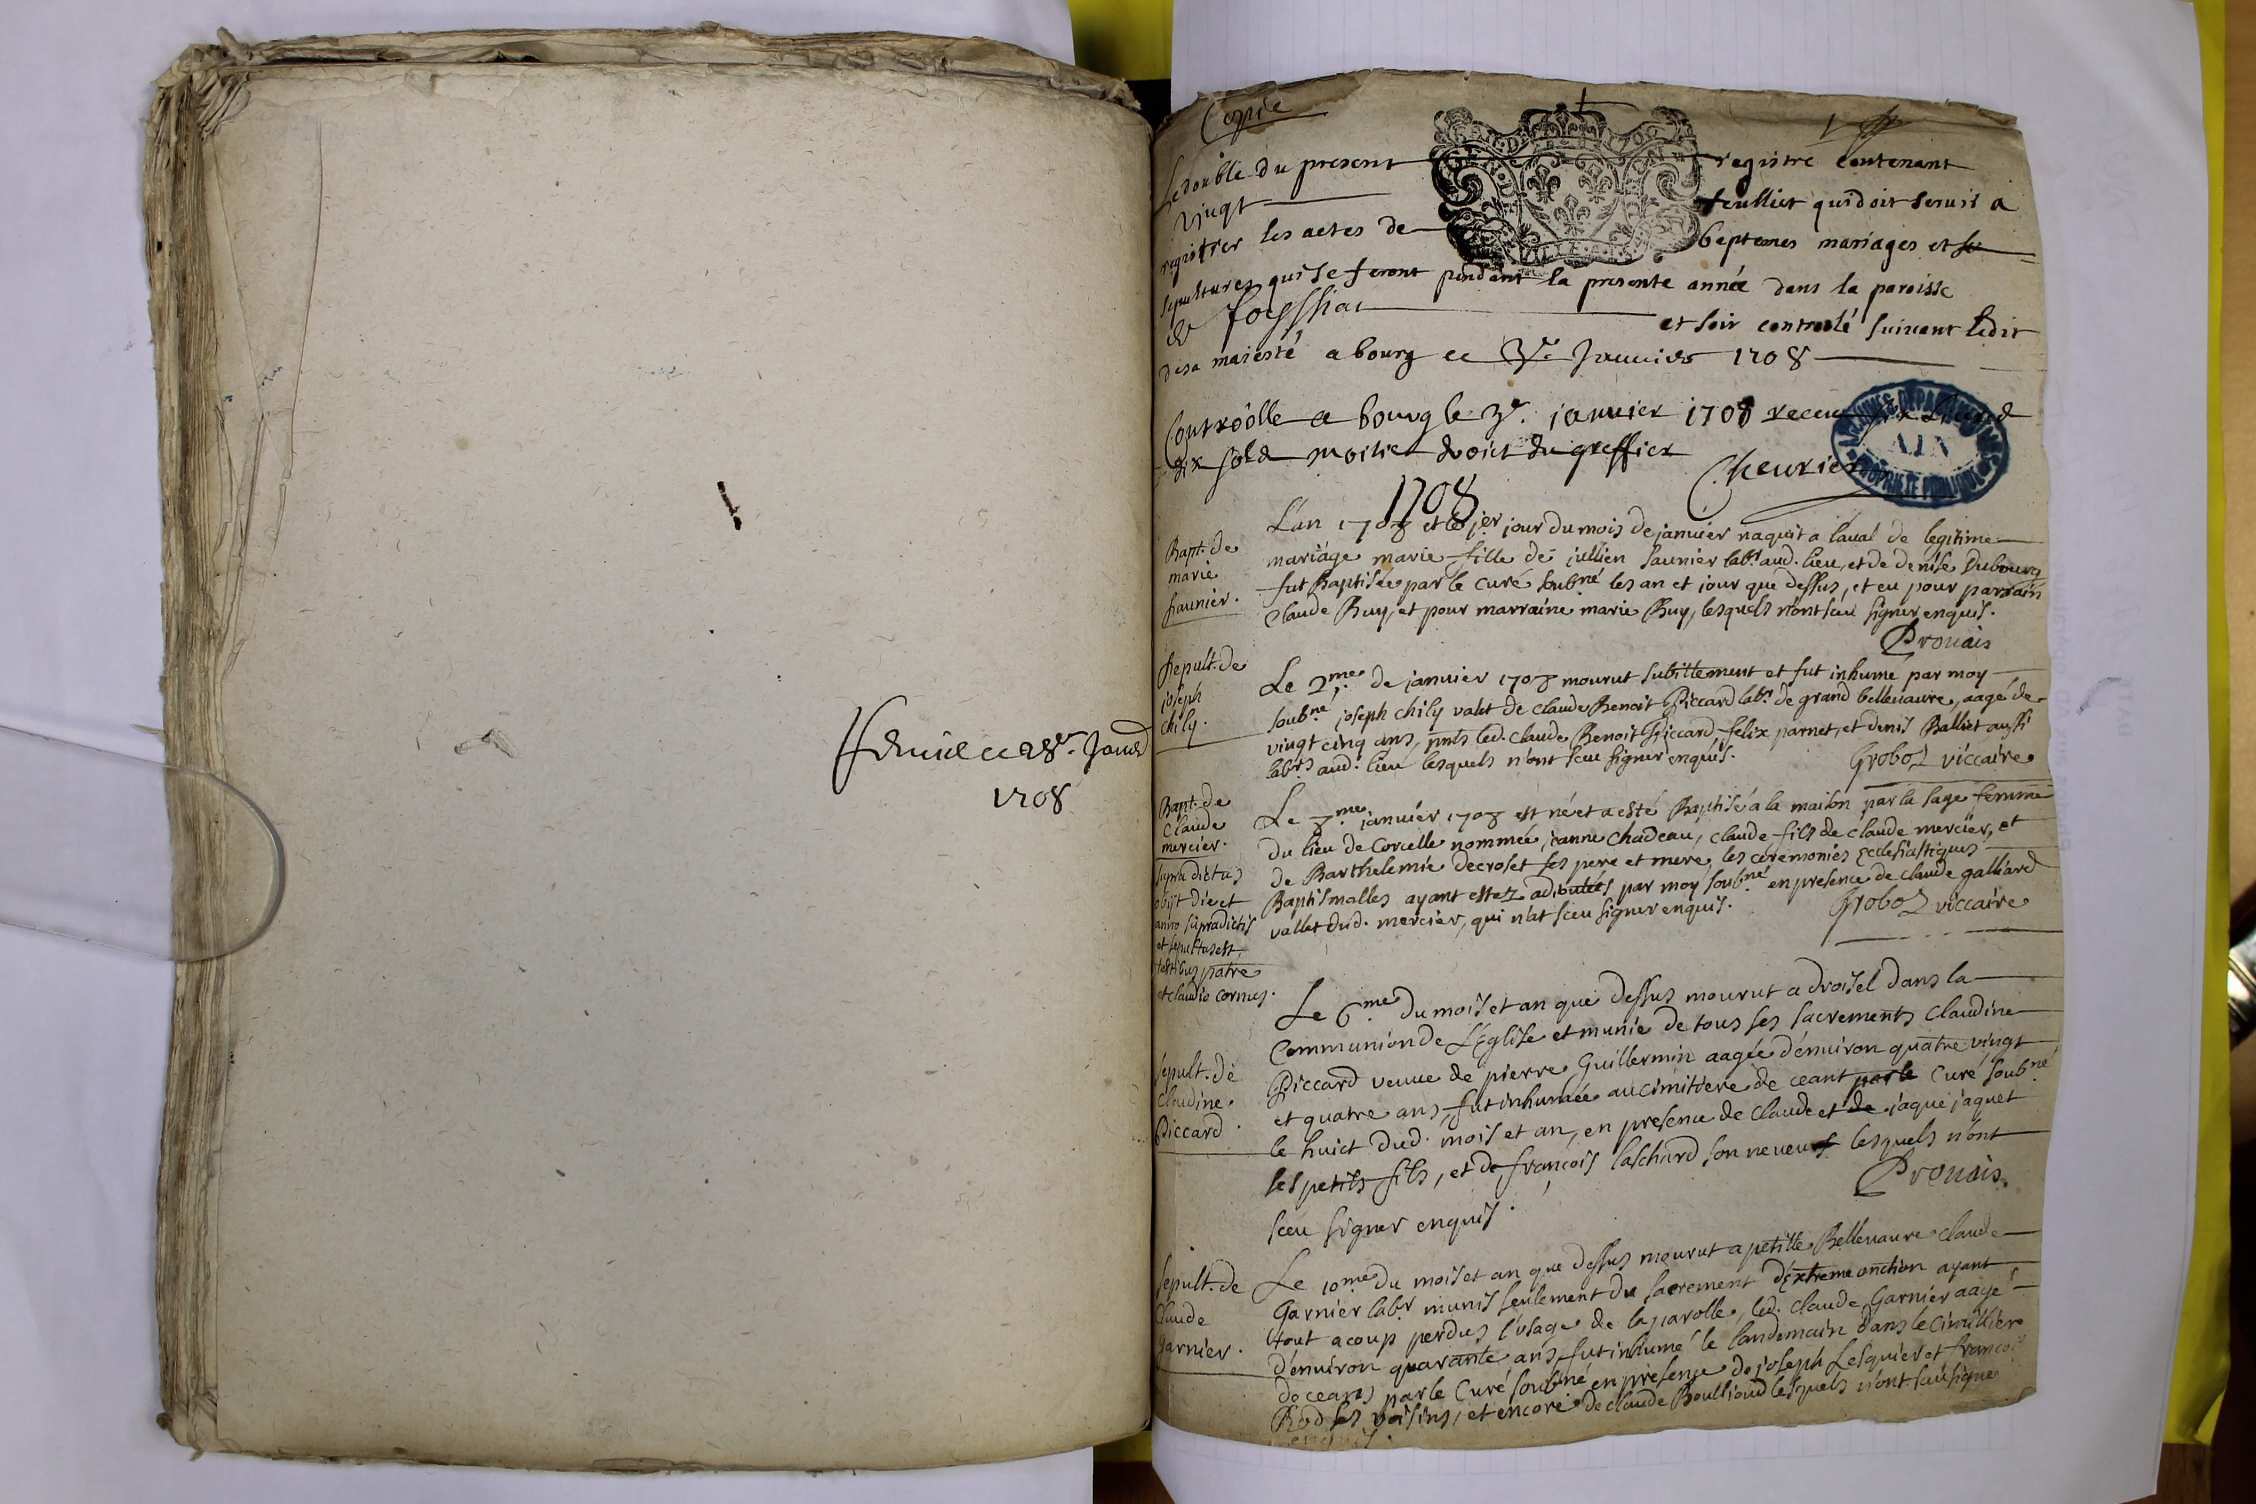 1708
Copie
Le double du present registre contenant
vingt feulliet qui doit seruir a
registrer les actes de baptemes mariages et se
sepultures qui se feront pendant la presente année dans la paroisse
de foissiat et soir controlé suivant ledit
de sa maiesté a bourg ce 3e Januier 1708
Controôlle a bourg le 3e. januier 1708 receu
dix sols moitié droict du greffier
Cheurier
ARCHIVES DEPARTEMENTALES
AIN
PROPRIETE PUBLIQUE
1708
Bapt. de
marie
saunier.
L'an 1708 et le jer jour du mois de januier naquit a laual de legitime
mariage marie fille de jullien saunier labr. aud. lieu, et de denise Dubourg
fut Baptisée par le curé soubné les an et jour que dessus, et eu pour parrain
Claude Buy, et pour marraine marie Buy, lesquels n'ont sceu signer enquis.
Prouais
Sepult. de
joseph
chily.
Le 2me. de januier 1708 mourut subittement et fut inhumé par moy
soubné, joseph chily valet de claude Benoit Piccard labr. de grand bellevavre, aagé de
vingt cinq ans, pnts led. claude Benoit Piccard, felix parnet, et denis Balliet aussi
labrs aud. lieu lesquels n'ont sceu signer enquis.
Groboz viccaire
Bapt. de
Claude
mercier.
supra dictus
obijt die et
anno supradictis
et sepultus est,
testibus patre
et claudio cormes.
Le 8me januier 1708 est né et a esté Baptisé a la maison par la sage femme
du lieu de Corcelle nommée janne chadeau, claude fils de claude mercier, et
de Barthelemie decroset ses pere et mere, les ceremonies Ecclesiastiques
Baptismalles ayant estez adioutées par moy soubné en presence de claude galliard
vallet dud. mercier, qui n'at sceu signer enquis.
Groboz viccaire
Sepult. de
Claudine
Piccard.
Le 6me du mois et an que dessus mourut a droisel dans la
Communion de L'Eglise et munie de tous ses sacrements Claudine
Piccard veuue de pierre Guillermin aagée d'enuiron quatre vingt
et quatre ans, fut inhumée au cimitiere de ceant par le Curé soubné
le huict dud. mois et an, en presence de Claude et de jaque jaquet
ses petits fils, et de françois laschard son neueu lesquels n'ont
sceu signer enquis.
Prouais.
Sepult. de
Claude
Garnier.
Le 10me du mois et an que dessus mourut a petitte Bellevavre Claude
Garnier labr munis seulement du sacrement d'extreme onction ayant
tout a coup perdus l'vsage de la parolle, led. Claude Garnier aagé
d'enuiron quarante ans, fut inhumé le landemain dans le Cimittiere
de ceans par le Curé soubné en presence de joseph Lesquier et françois
Rod ses voisins, et encore de claude Boullioud lesquels n'ont sceu signe
enquis.